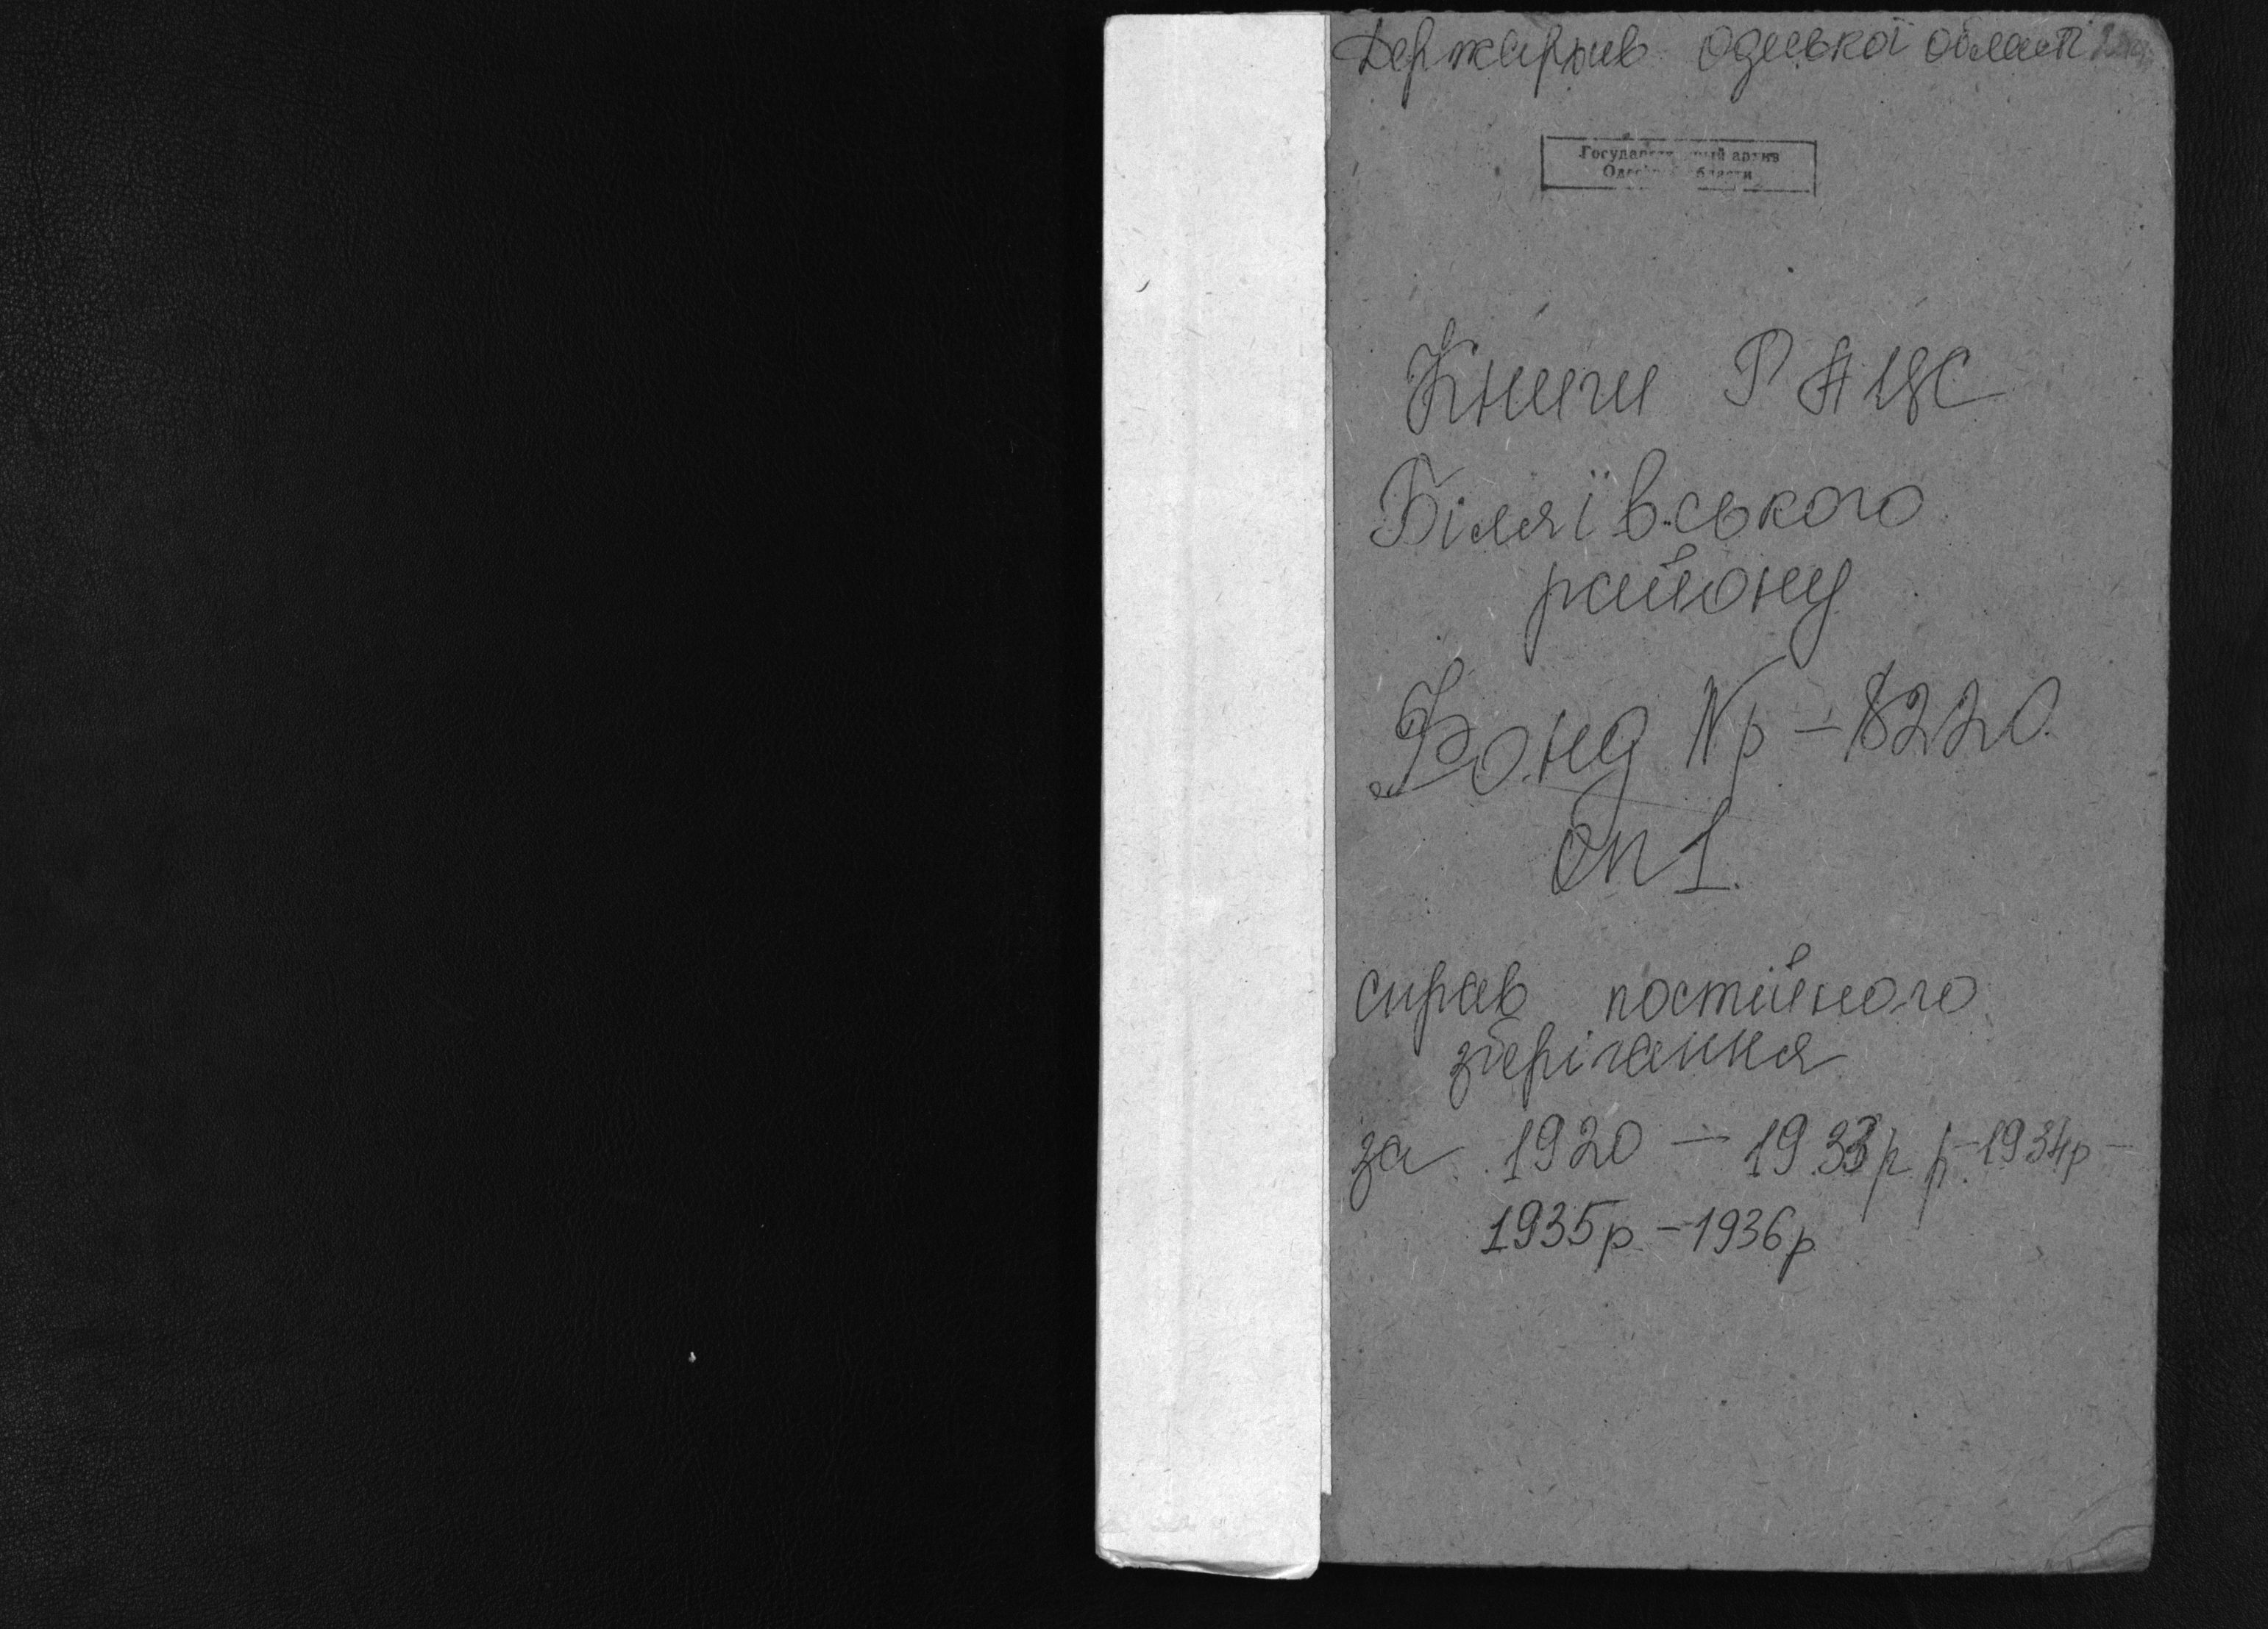 Держархив Одеської області
Государственный архив
Одесской области
Книги РАЦС
Біляївського
району
Фонд Nр – 8220.
оп 1.
справ постійного
зберігання
за 1920 – 1933р р. – 1934р –
1935р – 1936р